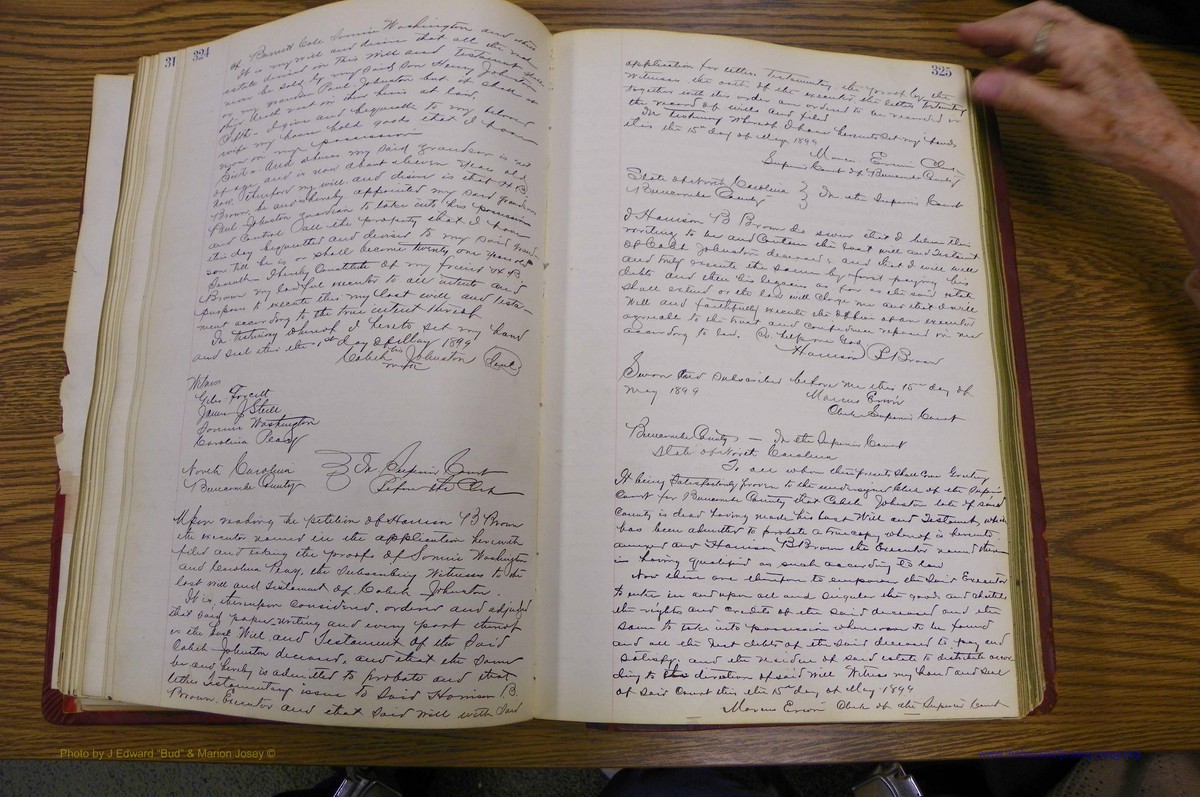 31
324
of Barnett Cole Sonnie Washington and other
It is my will and desire that all the real
estate devised in this Will and testament shall
never be sold by my said son Henry Johnston
or my grandson Paul Johnston but it shall
vest in their heirs at law,
Fifth - I give and bequeath to my beloved
wife my house hold goods that I have
now in my possession
Sixth - And whereas my said grandson is not
of age and is now about eleven years old
now therefore my will and desire is that H B
Brown be and hereby appointed my said grandson
Paul Johnston guardian to take into his possession
and control all the property that I have
this day bequeathed and devised to my said grand
son till he is or shall become twenty one years old
Seventh - I hereby constitute of my friend H B
Brown my lawful executor to all intents and
purposes to execute this my last will and testa-
ment according to the true intent thereof
In testimony whereof I hereto set my hand
and seal this the 1st day of May 1899
Caleb his Johnston (Seal)
mark
Witness
Giles
James J Steel
Sonnie Washington
Carolina Peary
North Carolina } In Superior Court
Buncombe County } Before the Clerk
Upon reading the petition of Harrison B Brown
the executor named in the application herewith
filed and taking the proofs of Sonnie Washington
and Carolina Peay, the Subscribing Witnesses to the
last will and testament of Caleb Johnston.
It is, thereupon considered, ordered and adjudged
that said paper writing and every part thereof
is the last Will and Testament of the said
Caleb Johnston deceased, and that the same
be and hereby is admitted to probate and that
letters testamentary issue to said Harrison B.
Brown, Executor and that said will with said
325
application for letters testamentary, the proof by the
witnesses the oath of the executor the letters testamentary
together with this order are ordered to be recorded in
the record of wills and filed
In testimony whereof I have hereunto set my hand
this the 15th day of May 1899
Marcus Erwin Clerk
Superior Court of Buncombe County
State of North Carolina }
Buncombe County } In the Superior Court
I Harrison B Brown do swear that I believe this
writing to be and contain the last will and testament
of Caleb Johnston deceased, and that I will well
and truly execute the same by first paying his
debts and then his legacies as far as the said estate
shall extend or the law will charge me and that I will
well and faithfully execute the office of an executor
agreeable to the trust and confidence reposed in me
according to law. So help me God
Harrison B Brown
Sworn and subscribed before me this 15th day of
May 1899
Marcus Erwin
Clerk Superior Court
Buncombe County - In the Superior Court
State of North Carolina
To all whom these presents shall come Greeting
It being satisfactorily proven to the undersigned Clerk of the Superior
Court for Buncombe County that Caleb Johnston late of said
County is dead having made his last Will and Testament, which
has been admitted to probate a true copy whereof is hereunto
annexed and Harrison B Brown the Executor named therein
is having qualified as such according to law
Now these are therefore to empower the said Executor
to enter in and upon all and singular the goods and chattels
the rights and credits of the said deceased and the
same to take into possession wheresoever to be found
and all the just debts of the said deceased to pay and
satisfy, and the residue of said estate to distribute accor
ding to the direction of said will Witness my hand and seal
of said Court this the 15th day of May 1899
Marcus Erwin Clerk of the Superior Court
Photo by J Edward "Bud" & Marion Josey ©